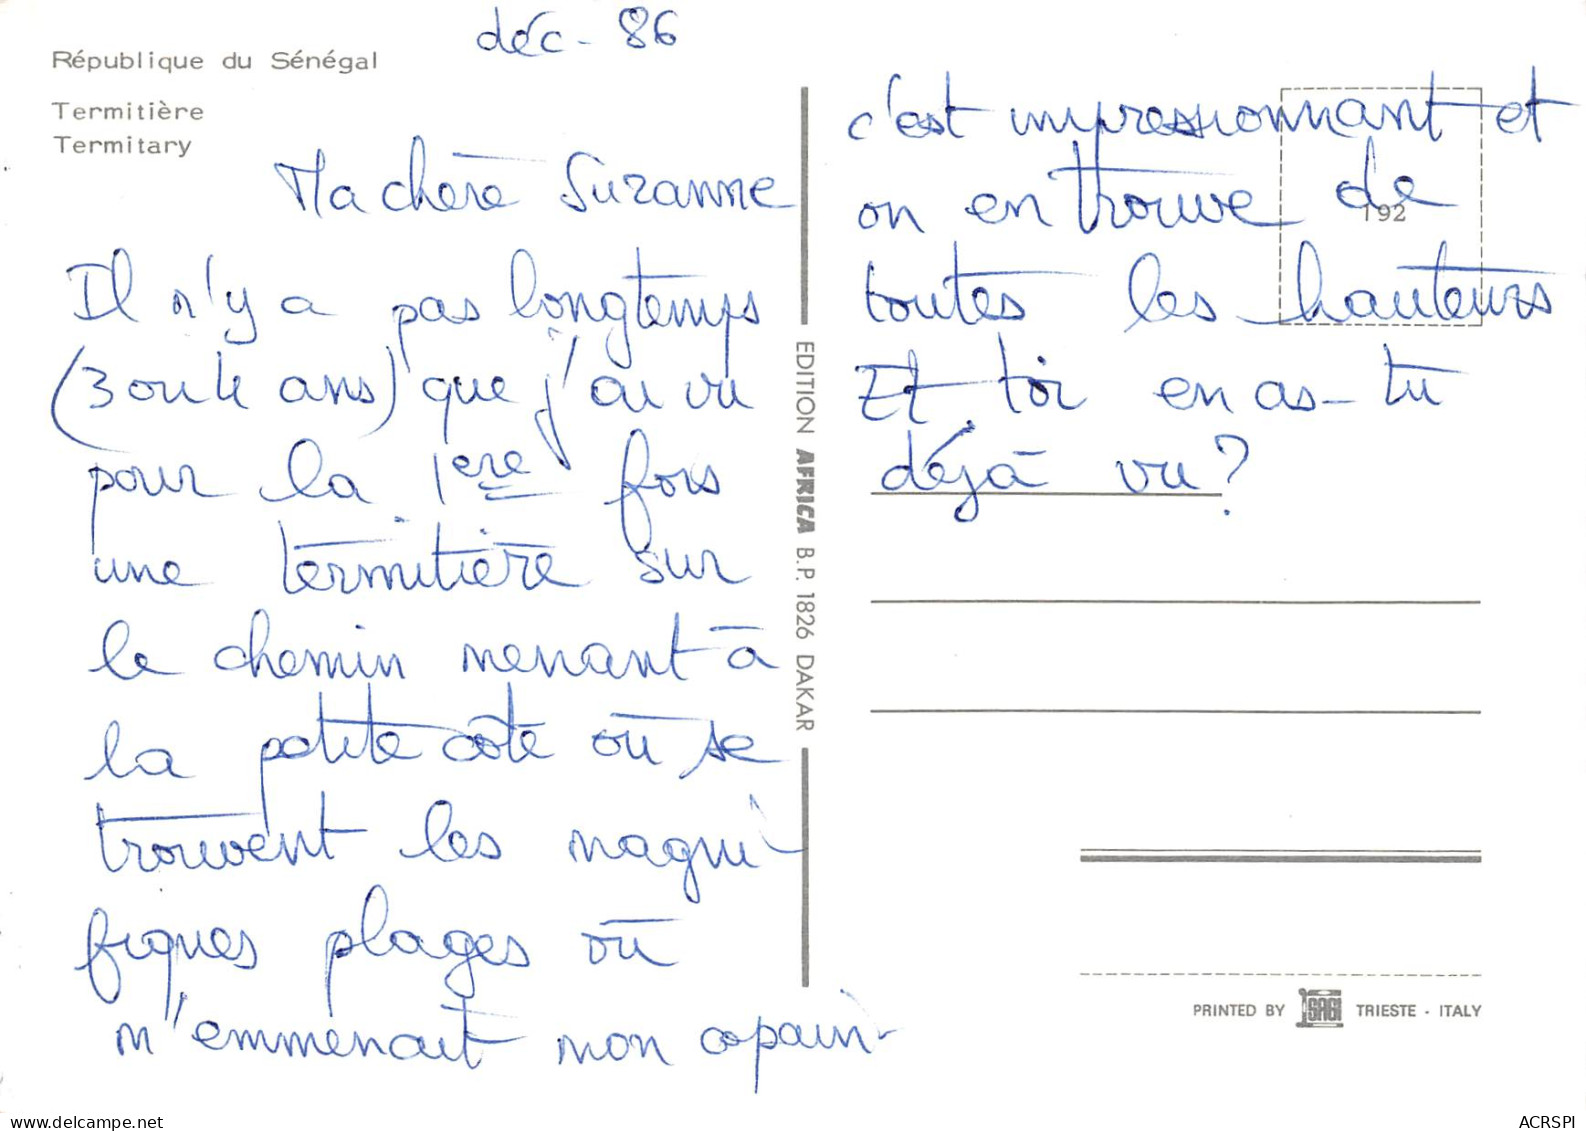 déc - 86
République du Sénégal
Termitière
Termitary
Ma chère Suzanne
Il n'y a pas longtemps
(3 ou 4 ans) que j'ai vu
pour la 1ere fois
une termitière sur
le chemin menant à
la petite côte où se
trouvent les magni-
fiques plages où
m'emmenait mon copain -
c'est impressionnant et
on en trouve de
toutes les hauteurs
Et toi en as-tu
déjà vu ?
192
EDITION AFRICA B.P. 1826 DAKAR
PRINTED BY SAGI TRIESTE - ITALY
ACRSPI